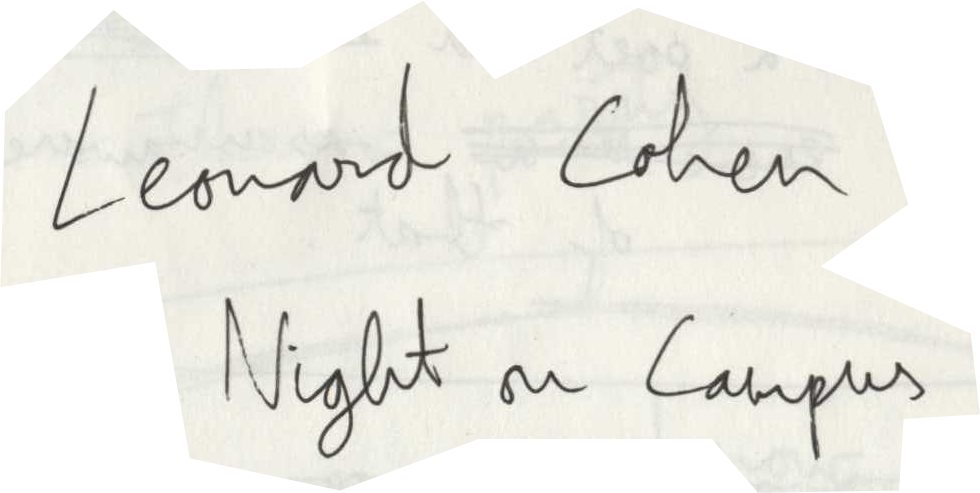 Leonard Cohen
Night on Campus